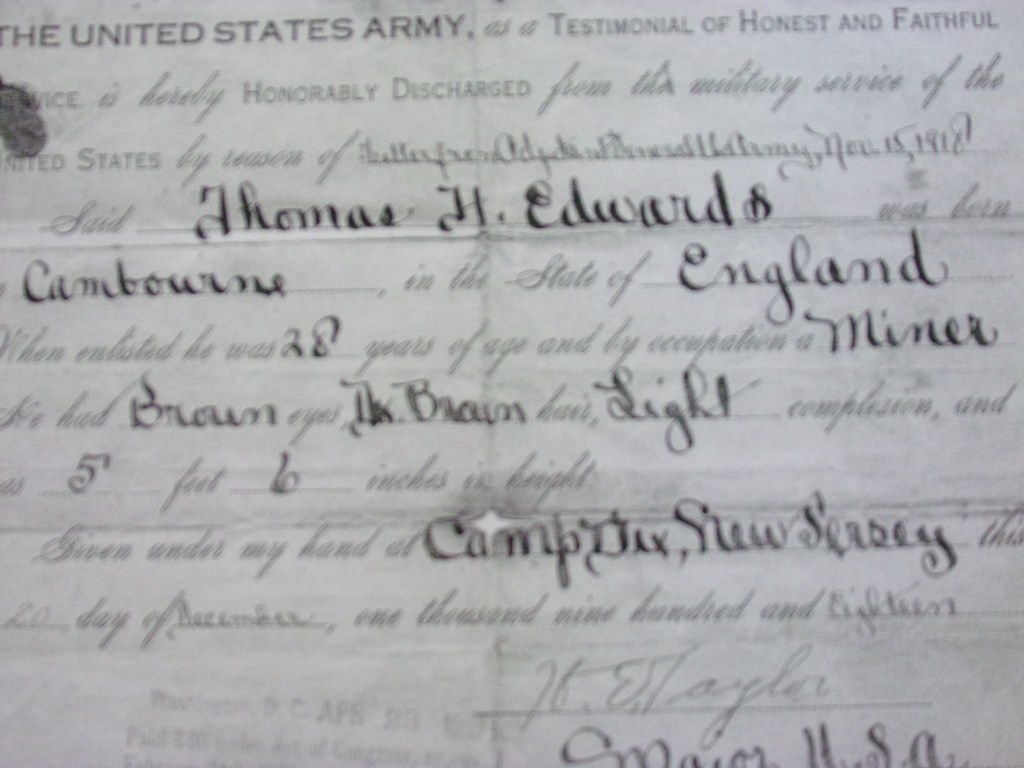 THE UNITED STATES ARMY, as a TESTIMONIAL OF HONEST AND FAITHFUL
is hereby HONORABLY DISCHARGED from the military service of the
STATES by reason of Nov. 15, 1918
Said Thomas H. Edwards was born
Cambourne, in the State of England
When enlisted he was 28 years of age and by occupation a Miner
He had Brown eyes, Dk. Brown hair, Light complexion, and
5 feet 6 inches in height.
Given under my hand at Camp Dix, New Jersey this
20 day of December, one thousand nine hundred and Eighteen
Washington, D. C. APR 23
Paid $60 under Act of Congress,
Taylor
Major U.S.A.